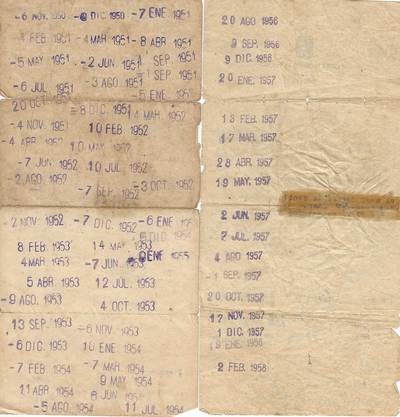 -6 NOV. 1950 -6 DIC. 1950 -7 ENE 1951
FEB. 1951 -4 MAR. 1951 -8 ABR. 1951
-5 MAY. 1951 -2 JUN. 1951 SEP. 1951
-6 JUL. 1951 -3 AGO. 1951 -1 SEP. 1951
-5 ENE
20 OCT. 8 DIC. 1951 14 MAR. 1952
-4 NOV. 1951 10 FEB. 1952
-4 ABR. 1952 10 MAY. 1952
-7 JUN. 1952 10 JUL. 1952
-2 AGO. 1952 -7 SEP. 1952 -3 OCT. 1952
-2 NOV. 1952 -7 DIC. 1952 -6 ENE 1953
8 FEB. 1953 14 MAY. 1953 DIC.
4 MAR. 1953 -7 JUN. 1953 ENE 1955
5 ABR. 1953 12 JUL. 1953
-9 AGO. 1953 4 OCT. 1953
13 SEP. 1953 -6 NOV. 1953
-6 DIC. 1953 10 ENE. 1954
-7 FEB. 1954 -7 MAR. 1954
11 ABR. 1954 9 MAY. 1954
JUN. 1954
-5 AGO. 1954 11 JUL. 1954
20 AGO 1956
9 SEP. 1956
9 DIC. 1956
20 ENE. 1957
13 FEB. 1957
17 MAR. 1957
28 ABR. 1957
19 MAY. 1957
2 JUN. 1957
7 JUL. 1957
4 AGO 1957
-1 SEP. 1957
20 OCT. 1957
17 NOV. 1957
1 DIC. 1957
ENE. 1958
2 FEB. 1958